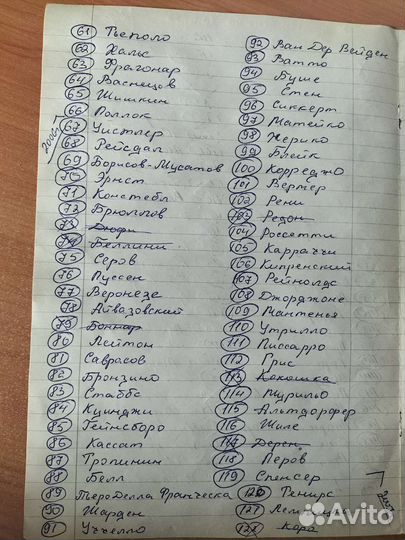 61 Тьеполо
62 Хальс
63 Фрагонар
64 Васнецов
65 Шишкин
66 Поллок
67 Уистлер
68 Рейсдал
69 Борисов-Мусатов
70 Эрнст
71 Констебл
72 Брюллов
73 Дюфи
74 Беллини
75 Серов
76 Пуссен
77 Веронезе
78 Айвазовский
79 Боннар
80 Лейтон
81 Саврасов
82 Бронзино
83 Стаббс
84 Куинджи
85 Гейнсборо
86 Кассат
87 Тропинин
88 Белл
89 Пьеро Делла Франческа
90 Шарден
91 Уччелло
92 Ван Дер Вейден
93 Ватто
94 Буше
95 Стен
96 Сиккерт
97 Матейко
98 Жерико
99 Блейк
100 Корреджо
101 Вермер
102 Рени
103 Редон
104 Россетти
105 Карраччи
106 Кипренский
107 Рейнолдс
108 Джорджоне
109 Мантенья
110 Утрилло
111 Писсарро
112 Грис
113 Кокошка
114 Мурильо
115 Альтдорфер
116 Шиле
117 Дерен
118 Перов
119 Спенсер
120 Тенирс
121
122 Кара
Avito